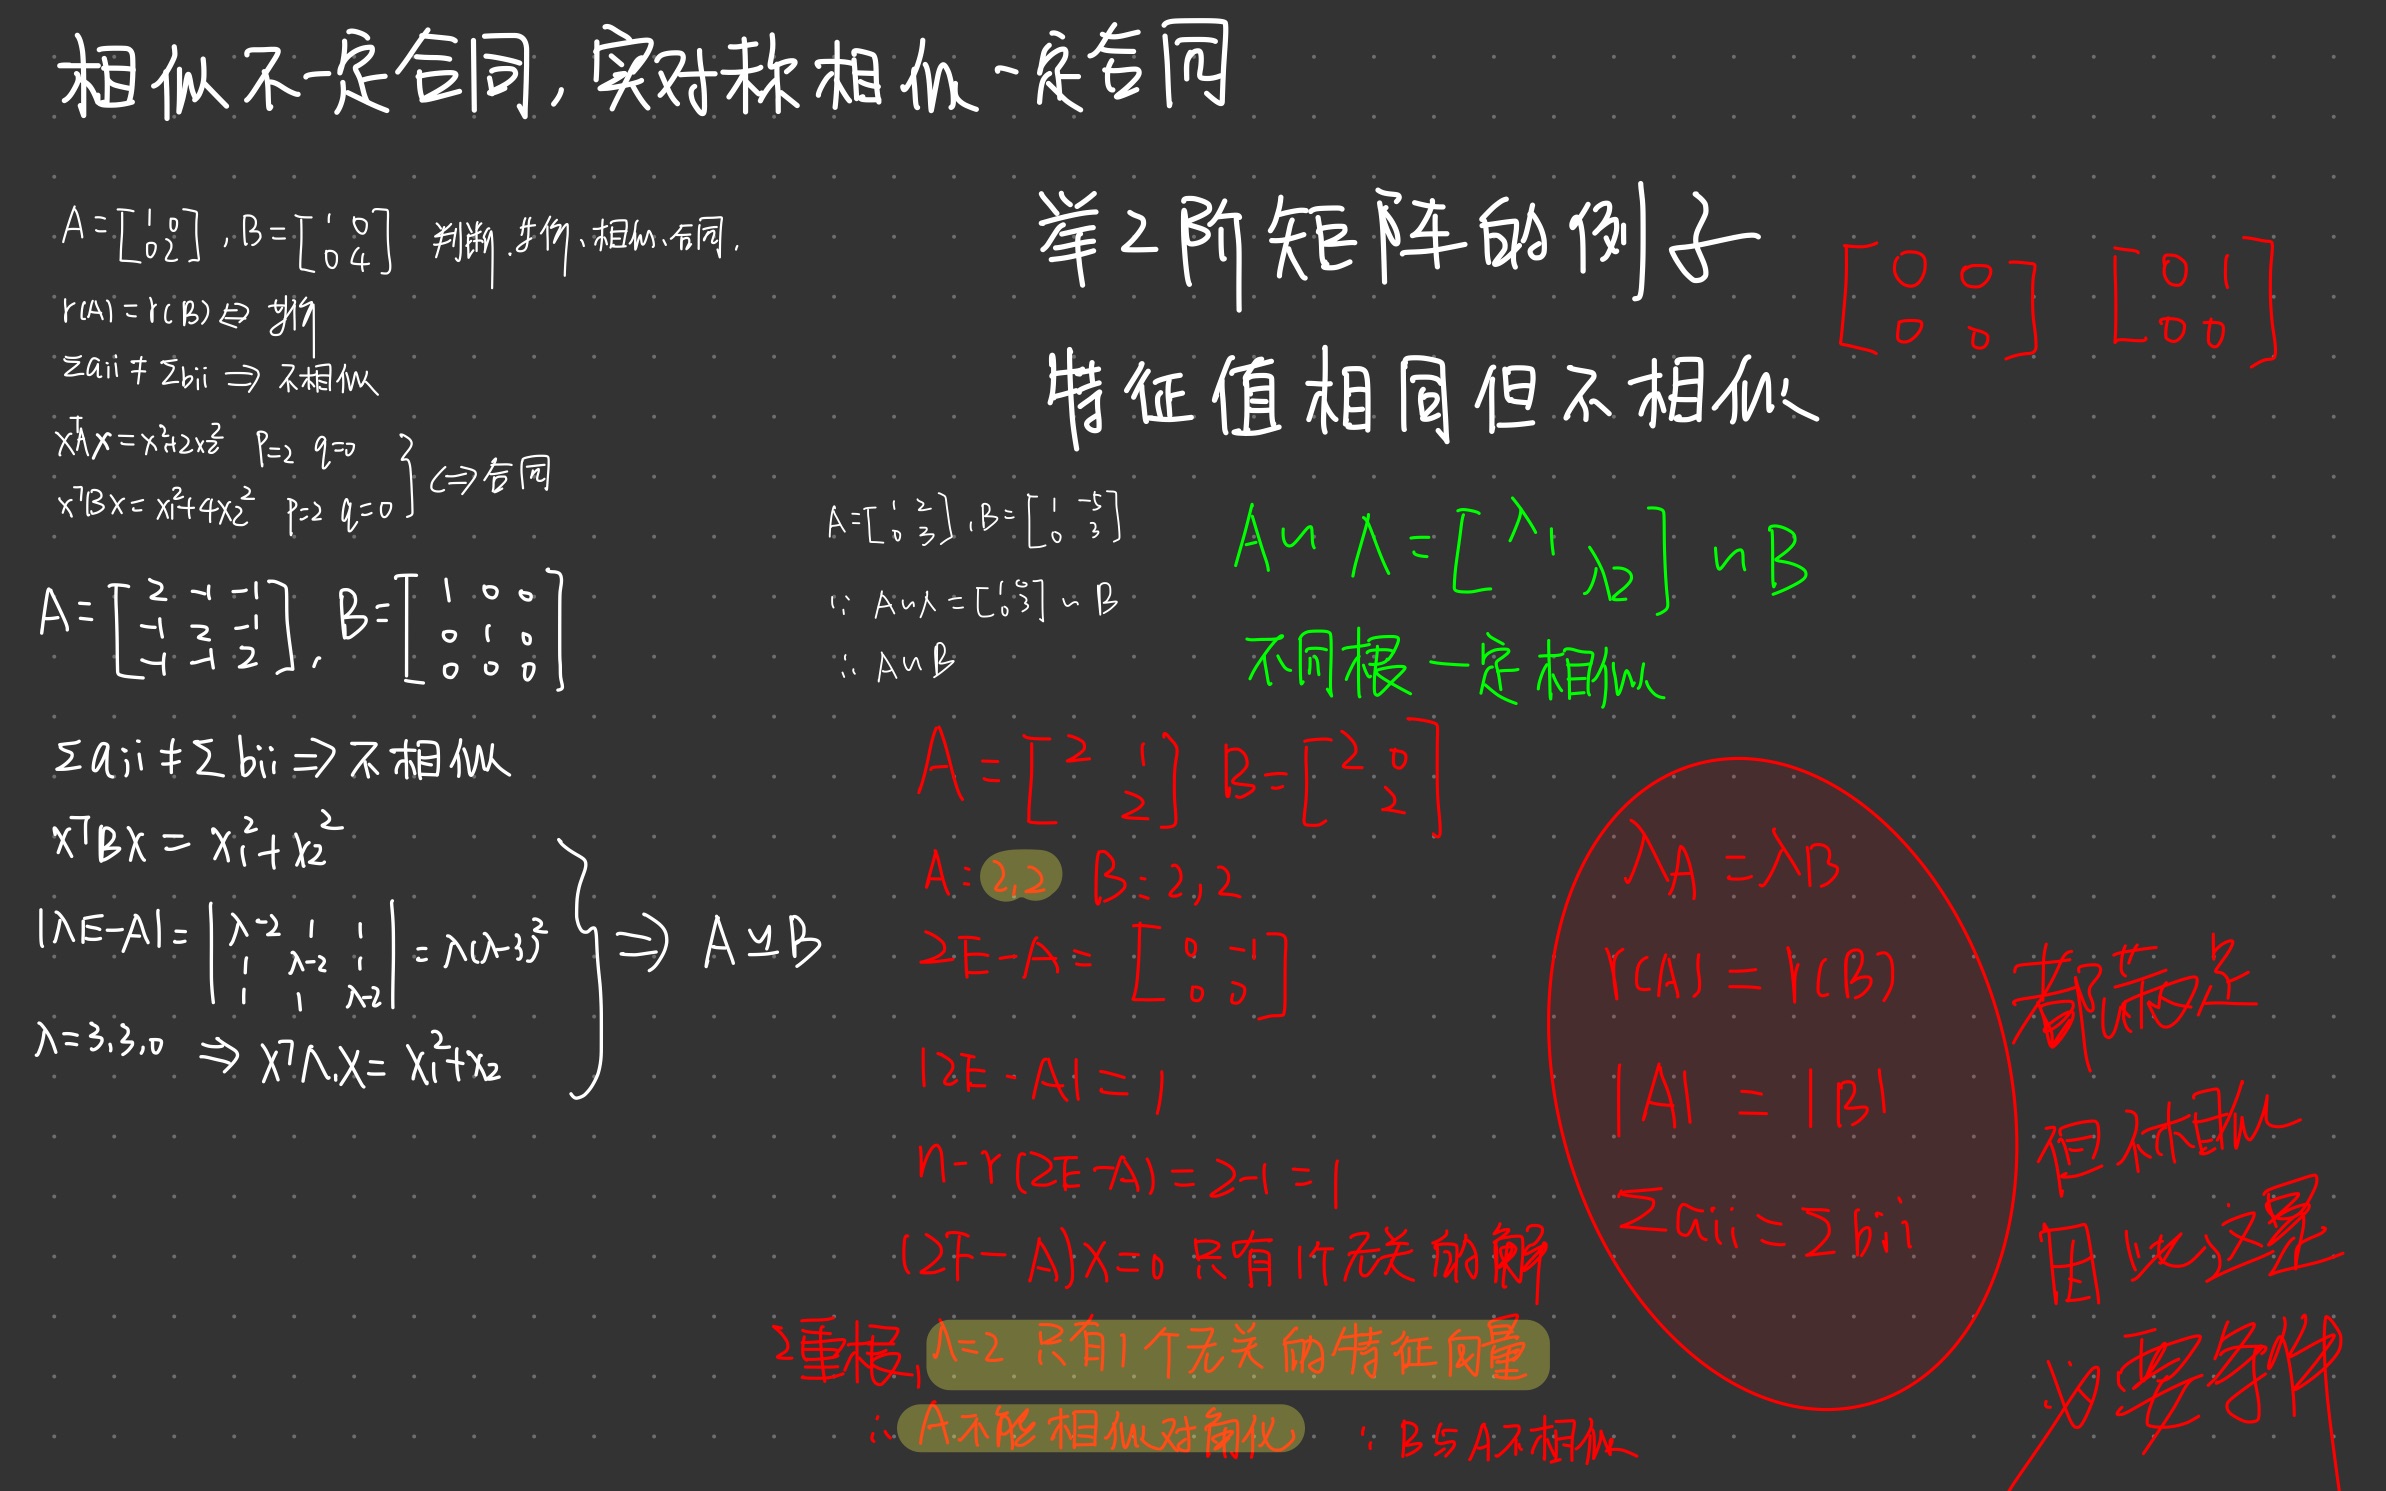 相似不一定合同，实对称相似一定合同
A=[1 0 0 2], B=[1 0 0 4] 判断,等价、相似、合同.
r(A)=r(B)⇔等价
Σaii≠Σbii⇒不相似
xᵀAx=x₁²+2x₂² P=2 q=0
xᵀBx=x₁²+4x₂² P=2 q=0
⇔合同
A=[2 -1 -1 -1 2 -1 -1 -1 2], B=[1 0 0 0 1 0 0 0 0]
Σaii≠Σbii⇒不相似
xᵀBx=x₁²+x₂²
|λE-A|=|λ-2 1 1 1 λ-2 1 1 1 λ-2|=λ(λ-3)²
λ=3,3,0 ⇒ xᵀΛ₁x=x₁²+x₂
⇒ A≃B
举2阶矩阵的例子
[0 0 0 0] [0 1 0 0]
特征值相同但不相似
A=[1 2 0 3], B=[1 -5 0 3]
∵ A∽Λ=[1 0 0 3]∽B
∴ A∽B
A∽Λ=[λ1 λ2]∽B
不同根一定相似
A=[2 1 2] B=[2 0 2]
A:2,2 B:2,2
2E-A=[0 -1 0 0]
|2E-A|=1
n-r(2E-A)=2-1=1
(2E-A)x=0只有1个无关的解
2重根,λ=2只有1个无关的特征向量
∴A不能相似对角化 ∴B与A不相似
λA=λB
r(A)=r(B)
|A|=|B|
Σaii=Σbii
都满足
但不相似
因此这是
必要条件